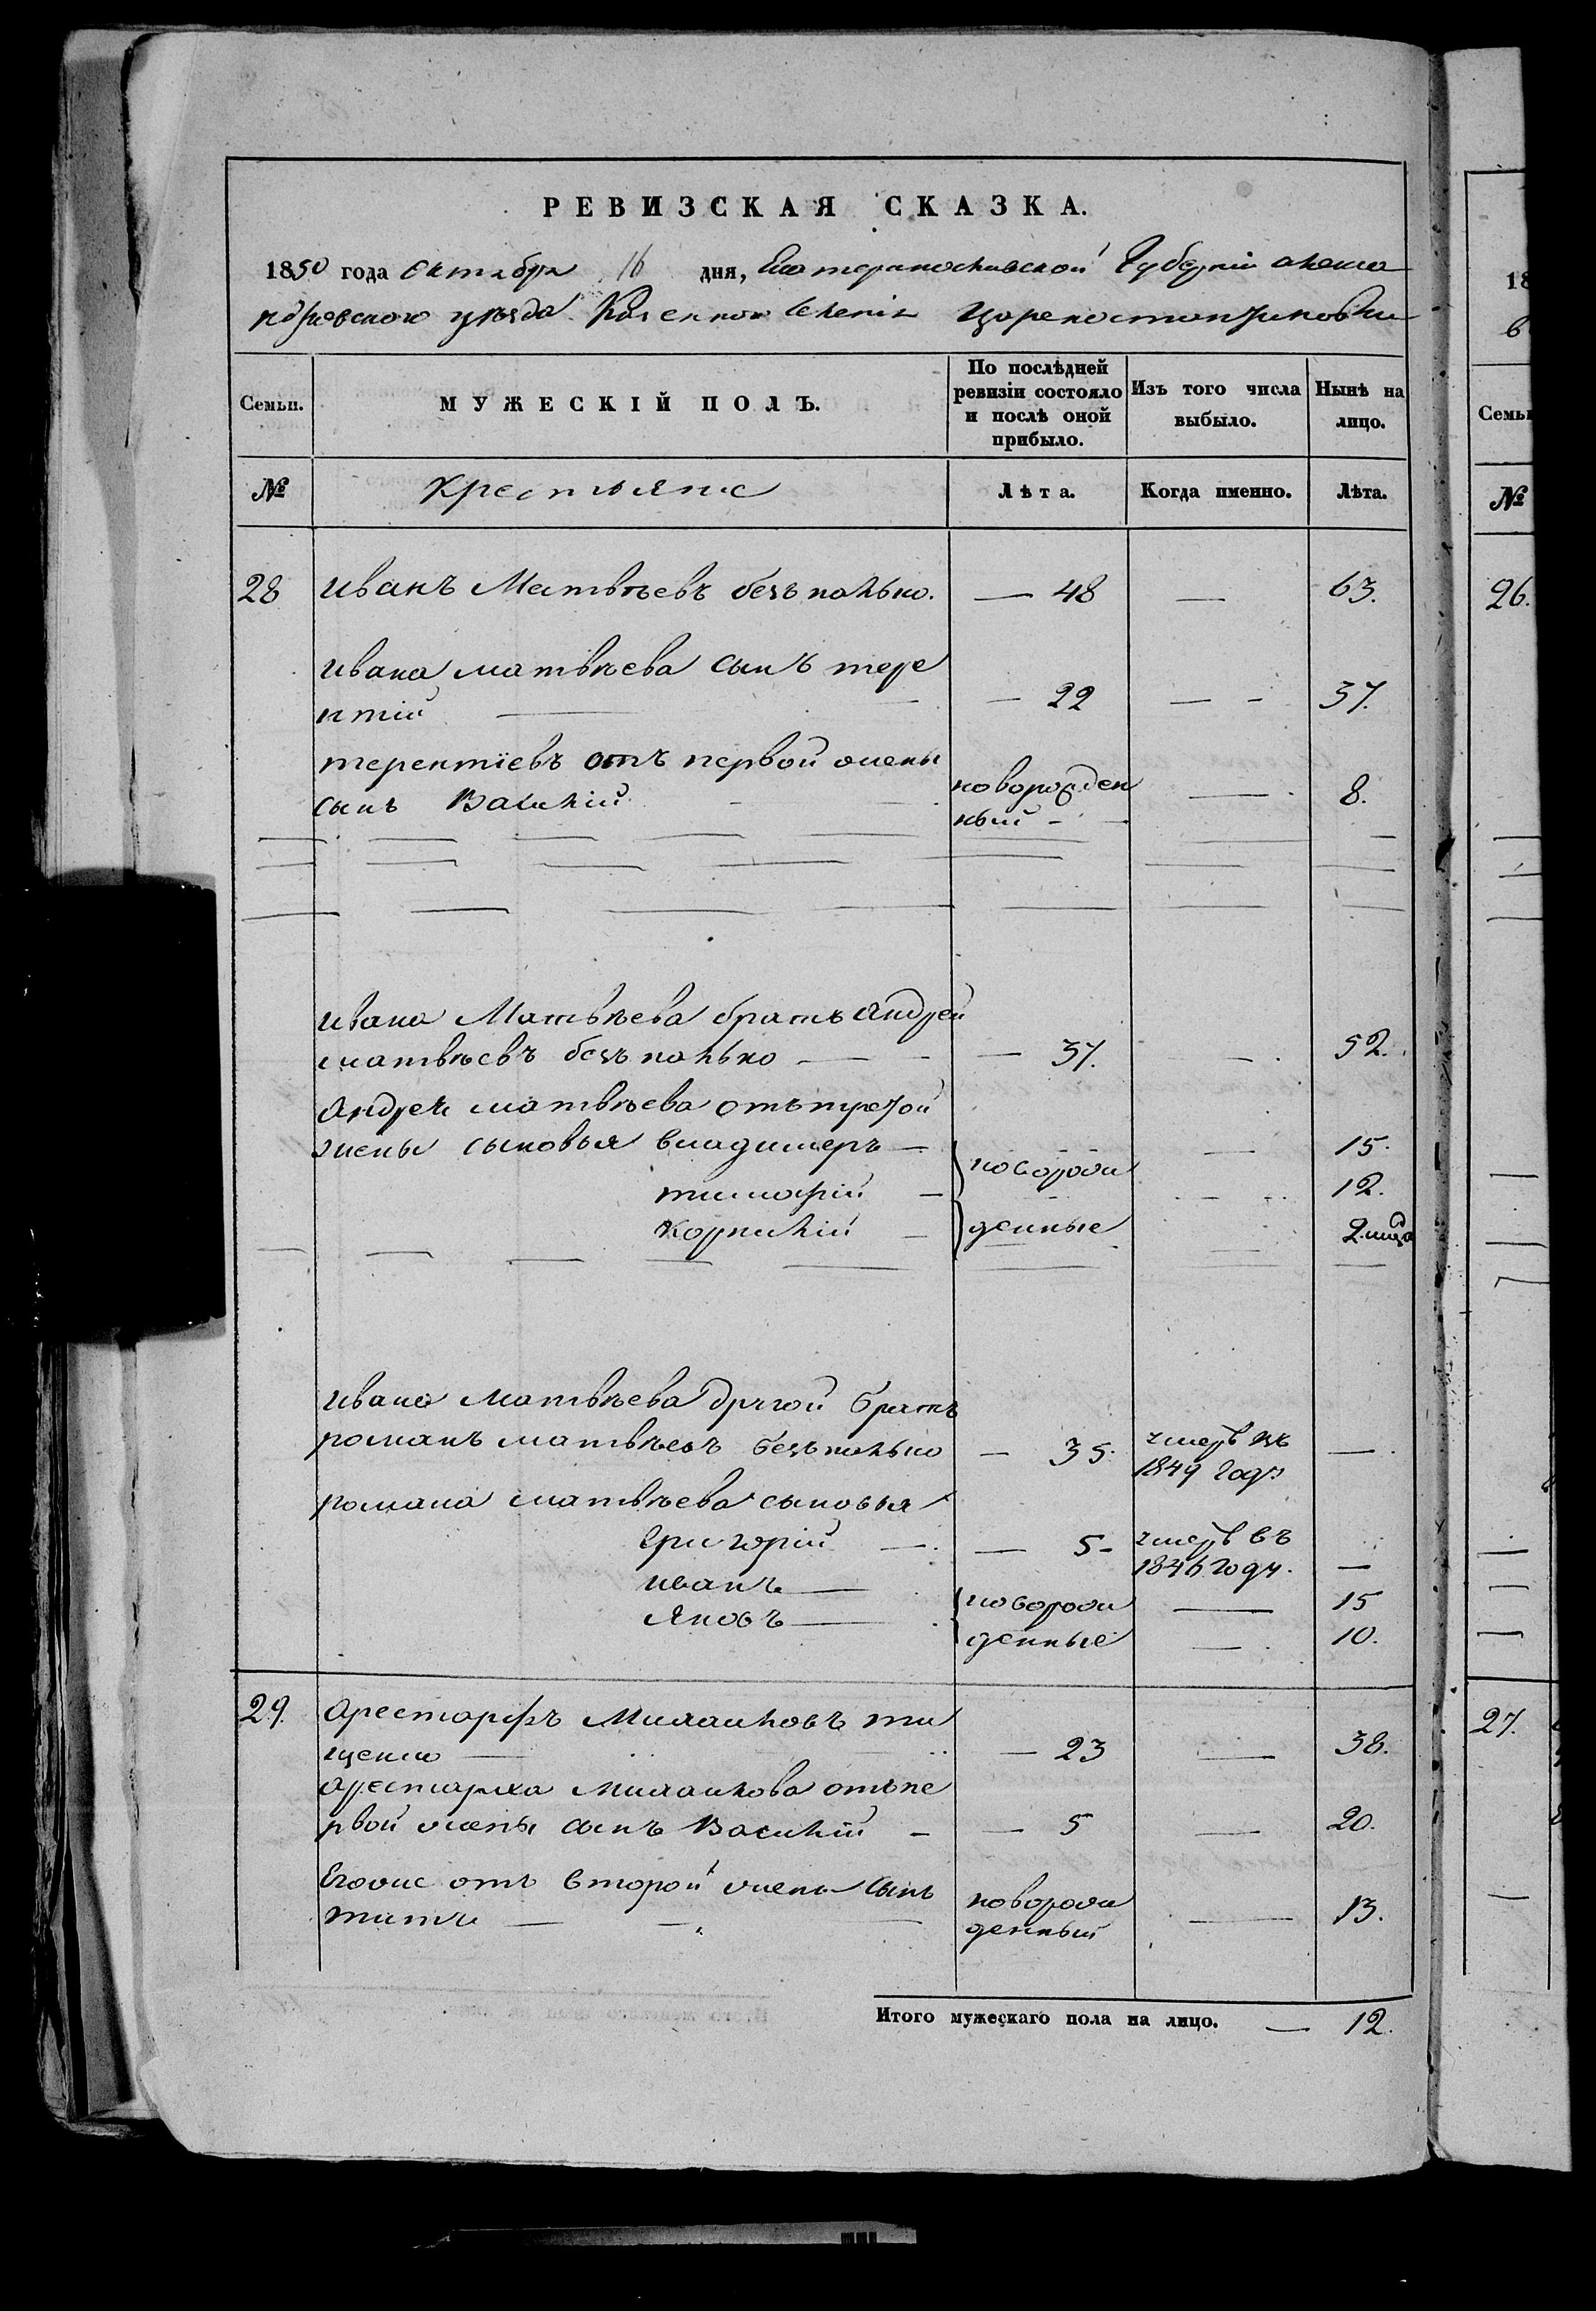 РЕВИЗСКАЯ СКАЗКА.
1850 года октября 16 дня, Екатеринославской Губерніи алекса
ндровского уѣзда Казенного Селенія Цареконстантиновки
Семьи. МУЖЕСКІЙ ПОЛЪ. По послѣдней ревизіи состояло и послѣ оной прибыло. Изъ того числа выбыло. Нынѣ на лицо.
№ Крестьяне Лѣта. Когда именно. Лѣта.
28 Иванъ Матвѣевъ безпалько. — 48 — 63.
Ивана матвѣева сынъ тере
нтій — — 22 — - 37.
терентіевъ отъ первой жены
сынъ Василій новорожден
ный - — 8.
Ивана Матвѣева братъ Андрей
матвѣевъ безпалько — — 37. — 52.
Андрея матвѣева отъ первой
жены сыновья владимеръ — новорож — 15.
тимофій — — 12.
Корнилій — денные 2 мѣса
Ивана Матвѣева другой братъ
романъ матвѣевъ безпалько — 35. умеръ въ —
1849 году
романа матвѣева сыновья
Григорій — — 5 - умеръ въ
1846 году. —
иванъ — новорож — 15
Яковъ — денные — 10.
29. Арестархъ Михайловъ ти
щенко — — 23 — 38.
Арестарха Михайлова отъ пе
рвой жены сынъ Василій — — 5 — 20.
Егоже отъ второй жены сынъ новорож
титъ — денный — 13.
Итого мужескаго пола на лицо. — 12.
18
Семьи
№
26.
27.